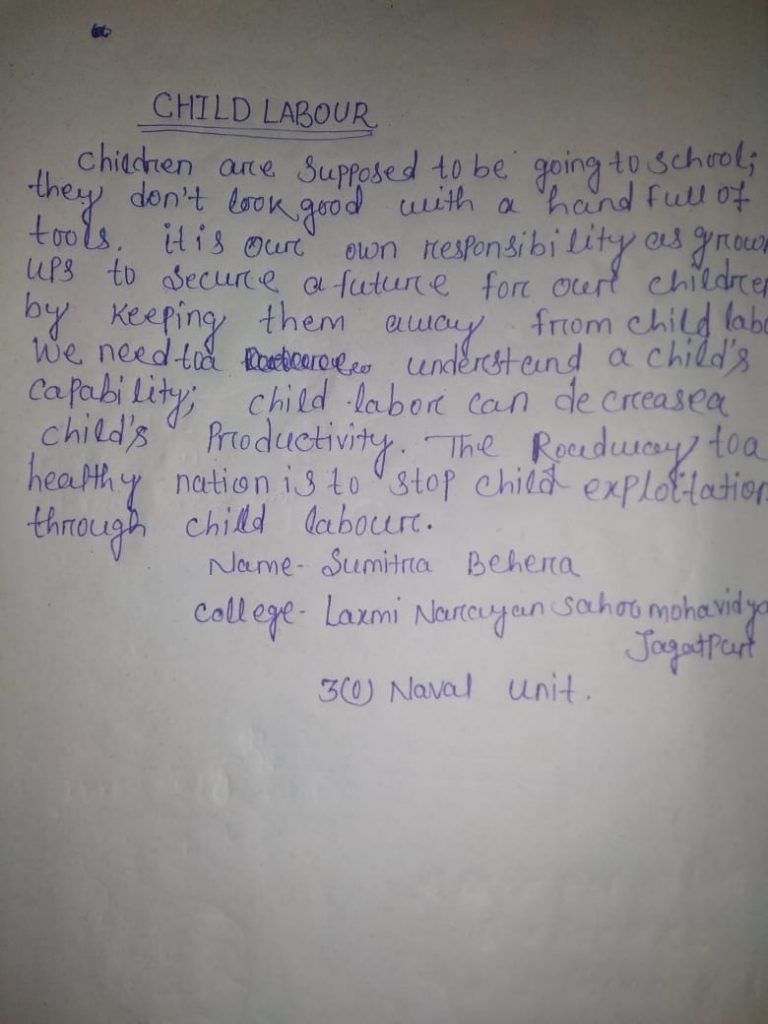 CHILD LABOUR
Children are supposed to be going to school;
they don't look good with a hand full of
tools. it is our own responsibility as grown
ups to secure a future for our children
by keeping them away from child labo
We need to a understand a child's
capability; child labor can decrease a
child's Productivity. The Roadway to a
healthy nation is to stop child exploitation
through child labour.
Name- Sumitra Behera
College- Laxmi Narayan Sahoo mohavidya
Jagatpur
3(O) Naval unit.